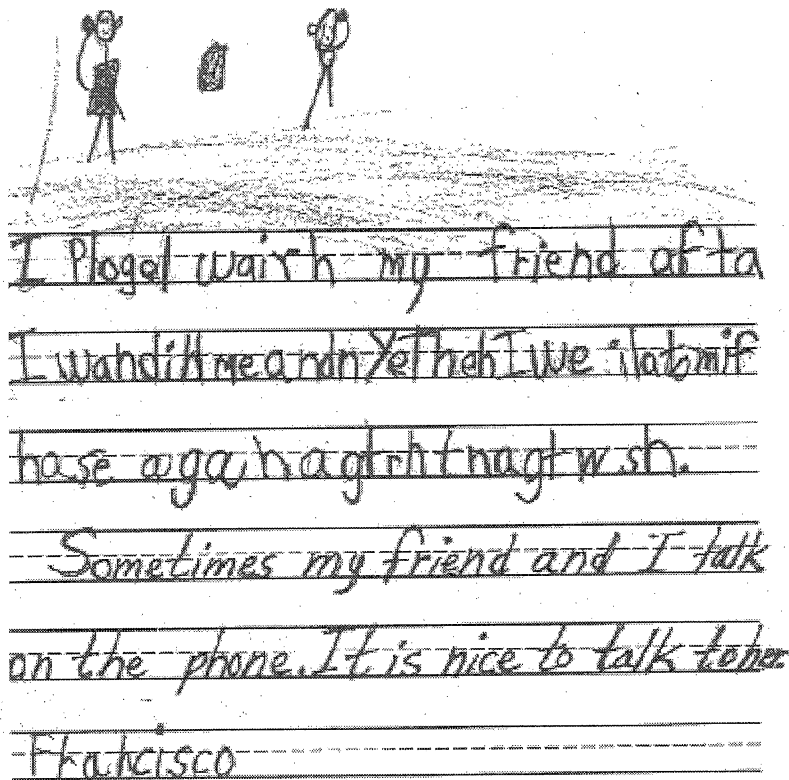 I Plogel wairh my friend afta
I wanditt me andn Yet Then I we ilatomif
hase aga nagtrht nagt w sh.
Sometimes my friend and I talk
on the phone. It is nice to talk to her.
Francisco